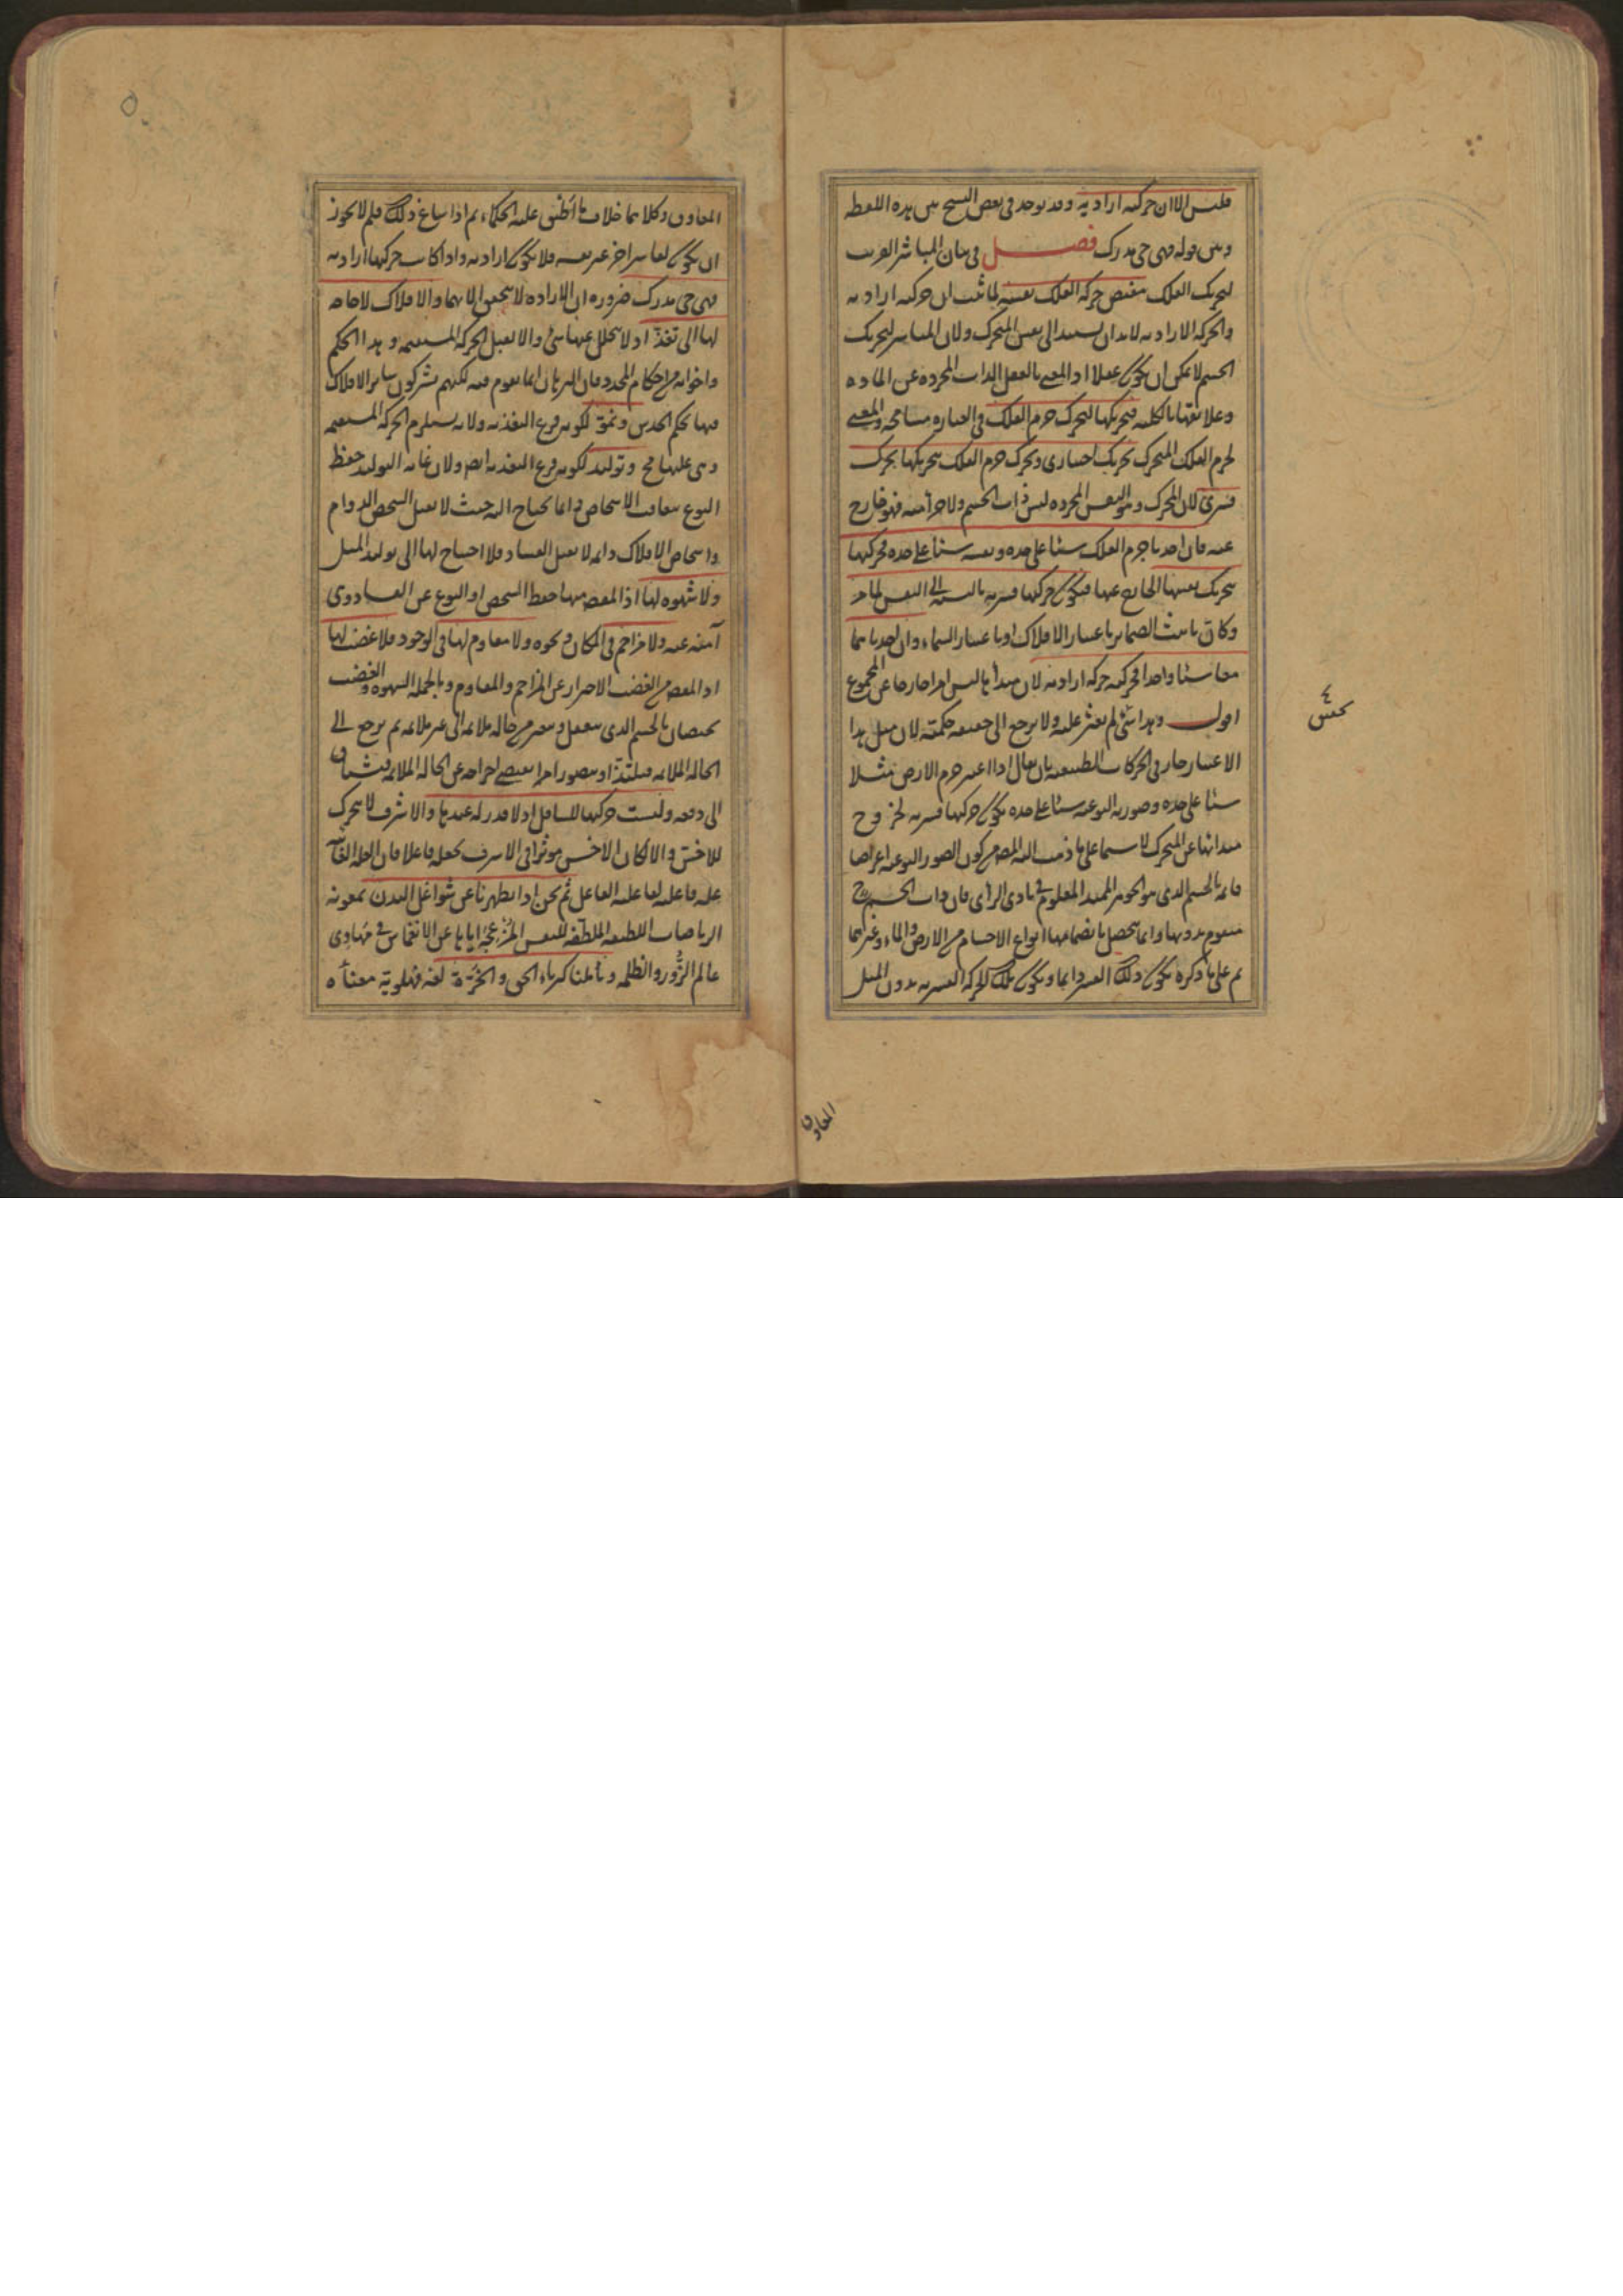 فليس الا ان حركته ارادية وقد يوجد في بعض النسخ بين هذه اللفظة
وبين قوله فهي حي مدرك فصل في بيان المباشر القريب
لتحريك الفلك مقتضي حركة الفلك نفسه لما ثبت ان حركته ارادية
والحركة الارادية لابد ان يستند الى نفس المتحرك ولان المباشر لتحريك
الجسم لا يمكن ان يكون عقلا اذ المعني بالعقل الذات المجردة عن المادة
وعلائقها بالكلية فتحريكها لتحرك جرم الفلك في العبارة مسامحة والمعنى
لجرم الفلك المتحرك تحريك اختياري وتحرك جرم الفلك بتحريكها تحرك
قسري لان المحرك وهو النفس المجردة ليس ذات الجسم ولا جزأ منه فهو خارج
عنه فان اخذنا جرم الفلك شيئا على حده ونفسه شيئا على حده فحركتها
بتحريك نفسها الخارج عنها فيكون حركتها قسرية بالنسبة الى النفس لما مر
وكان تانيث الضمائر باعتبار الافلاك او باعتبار السماء وان اخذناهما
معا شيئا واحدا فحركته حركة ارادية لان مبدأها ليس امرا خارجا عن المجموع
اقول وهذا شئ لم يعثر عليه ولا يرجع الى حقيقة حكمته لان مثل هذا
الاعتبار جار في الحركات الطبيعية بان يقال اذا اعتبر جرم الارض مثلا
شيئا على حده وصورته النوعية شيئا على حده يكون حركتها قسرية لخروج
مبدائها عن المتحرك لا سيما على ما ذهب اليه المص من كون الصور النوعية اعراضا
قائمة بالجسم الذي هو الجوهر الممتد المعلوم في بادي الرأي فان ذات الجسم ح
متقوم بدونها وانما يحصل بانضمامها انواع الاجسام من الارض والماء وغيرهما
ثم على ما ذكره يكون ذلك القسر دايما ويكون تلك الحركة القسرية بدون الميل
٤
المعاوق
٥
المعاوق وكلاهما خلاف ما اطبق عليه الحكماء ثم اذا ساغ ذلك فلم لا يجوز
ان يكون لقاسر اخر غير نفسه فلا يكون ارادية واذا كانت حركتها ارادية
فهي حي مدرك ضرورة ان الارادة لا يتحقق الا بهما والافلاك لا حاجة
لها الى تغذ اذ لا يتحلل عنها شئ والا لقبل الحركة المستقيمة وهذا الحكم
واخواته من احكام المحدد فان البرهان انما يقوم فيه لكنهم يشركون سائر الافلاك
فيها بحكم الحدس ونمو لكونه فرع التغذية ولانه يستلزم الحركة المستقيمة
وهي عليها مح وتوليد لكونه فرع التغذية ايض ولان غاية التوليد حفظ
النوع بتعاقب الاشخاص وانما يحتاج اليه حيث لا يقبل الشخص الدوام
واشخاص الافلاك دائمة لا يقبل الفساد فلا احتياج لها الى توليد المثل
ولا شهوة لها اذ المقصد منها حفظ الشخص او النوع عن الفساد وهي
آمنة عنه ولا مزاحم في المكان ونحوه ولا مقاوم لها في الوجود فلا غضب لها
اذ المقصد من الغضب الاحتراز عن المزاحم والمقاوم وبالجملة الشهوة والغضب
يختصان بالجسم الذي ينفعل ويتغير من حالة ملائمة الى غير ملائمة ثم يرجع الى
الحالة الملائمة فيلتذ او يتصور امرا يقتضي اخراجه عن الحالة الملائمة فيشتاق
الى دفعه وليست حركتها للسافل اذ لا قدر له عندها والاشرف لا يتحرك
للاخس والا لكان الاخس مؤثرا في الاشرف بجعله فاعلا فان العلة الغائية
علة فاعلية لفاعلية الفاعل ثم نحن اذا تطهرنا عن شواغل البدن بمعونة
الرياضات اللطيفة الملطفة للنفس المزعجة اياها عن الانغماس في مهاوي
عالم الزور والظلمة وتأملنا كبرياء الحق والخرة لغة فهلوية معناه